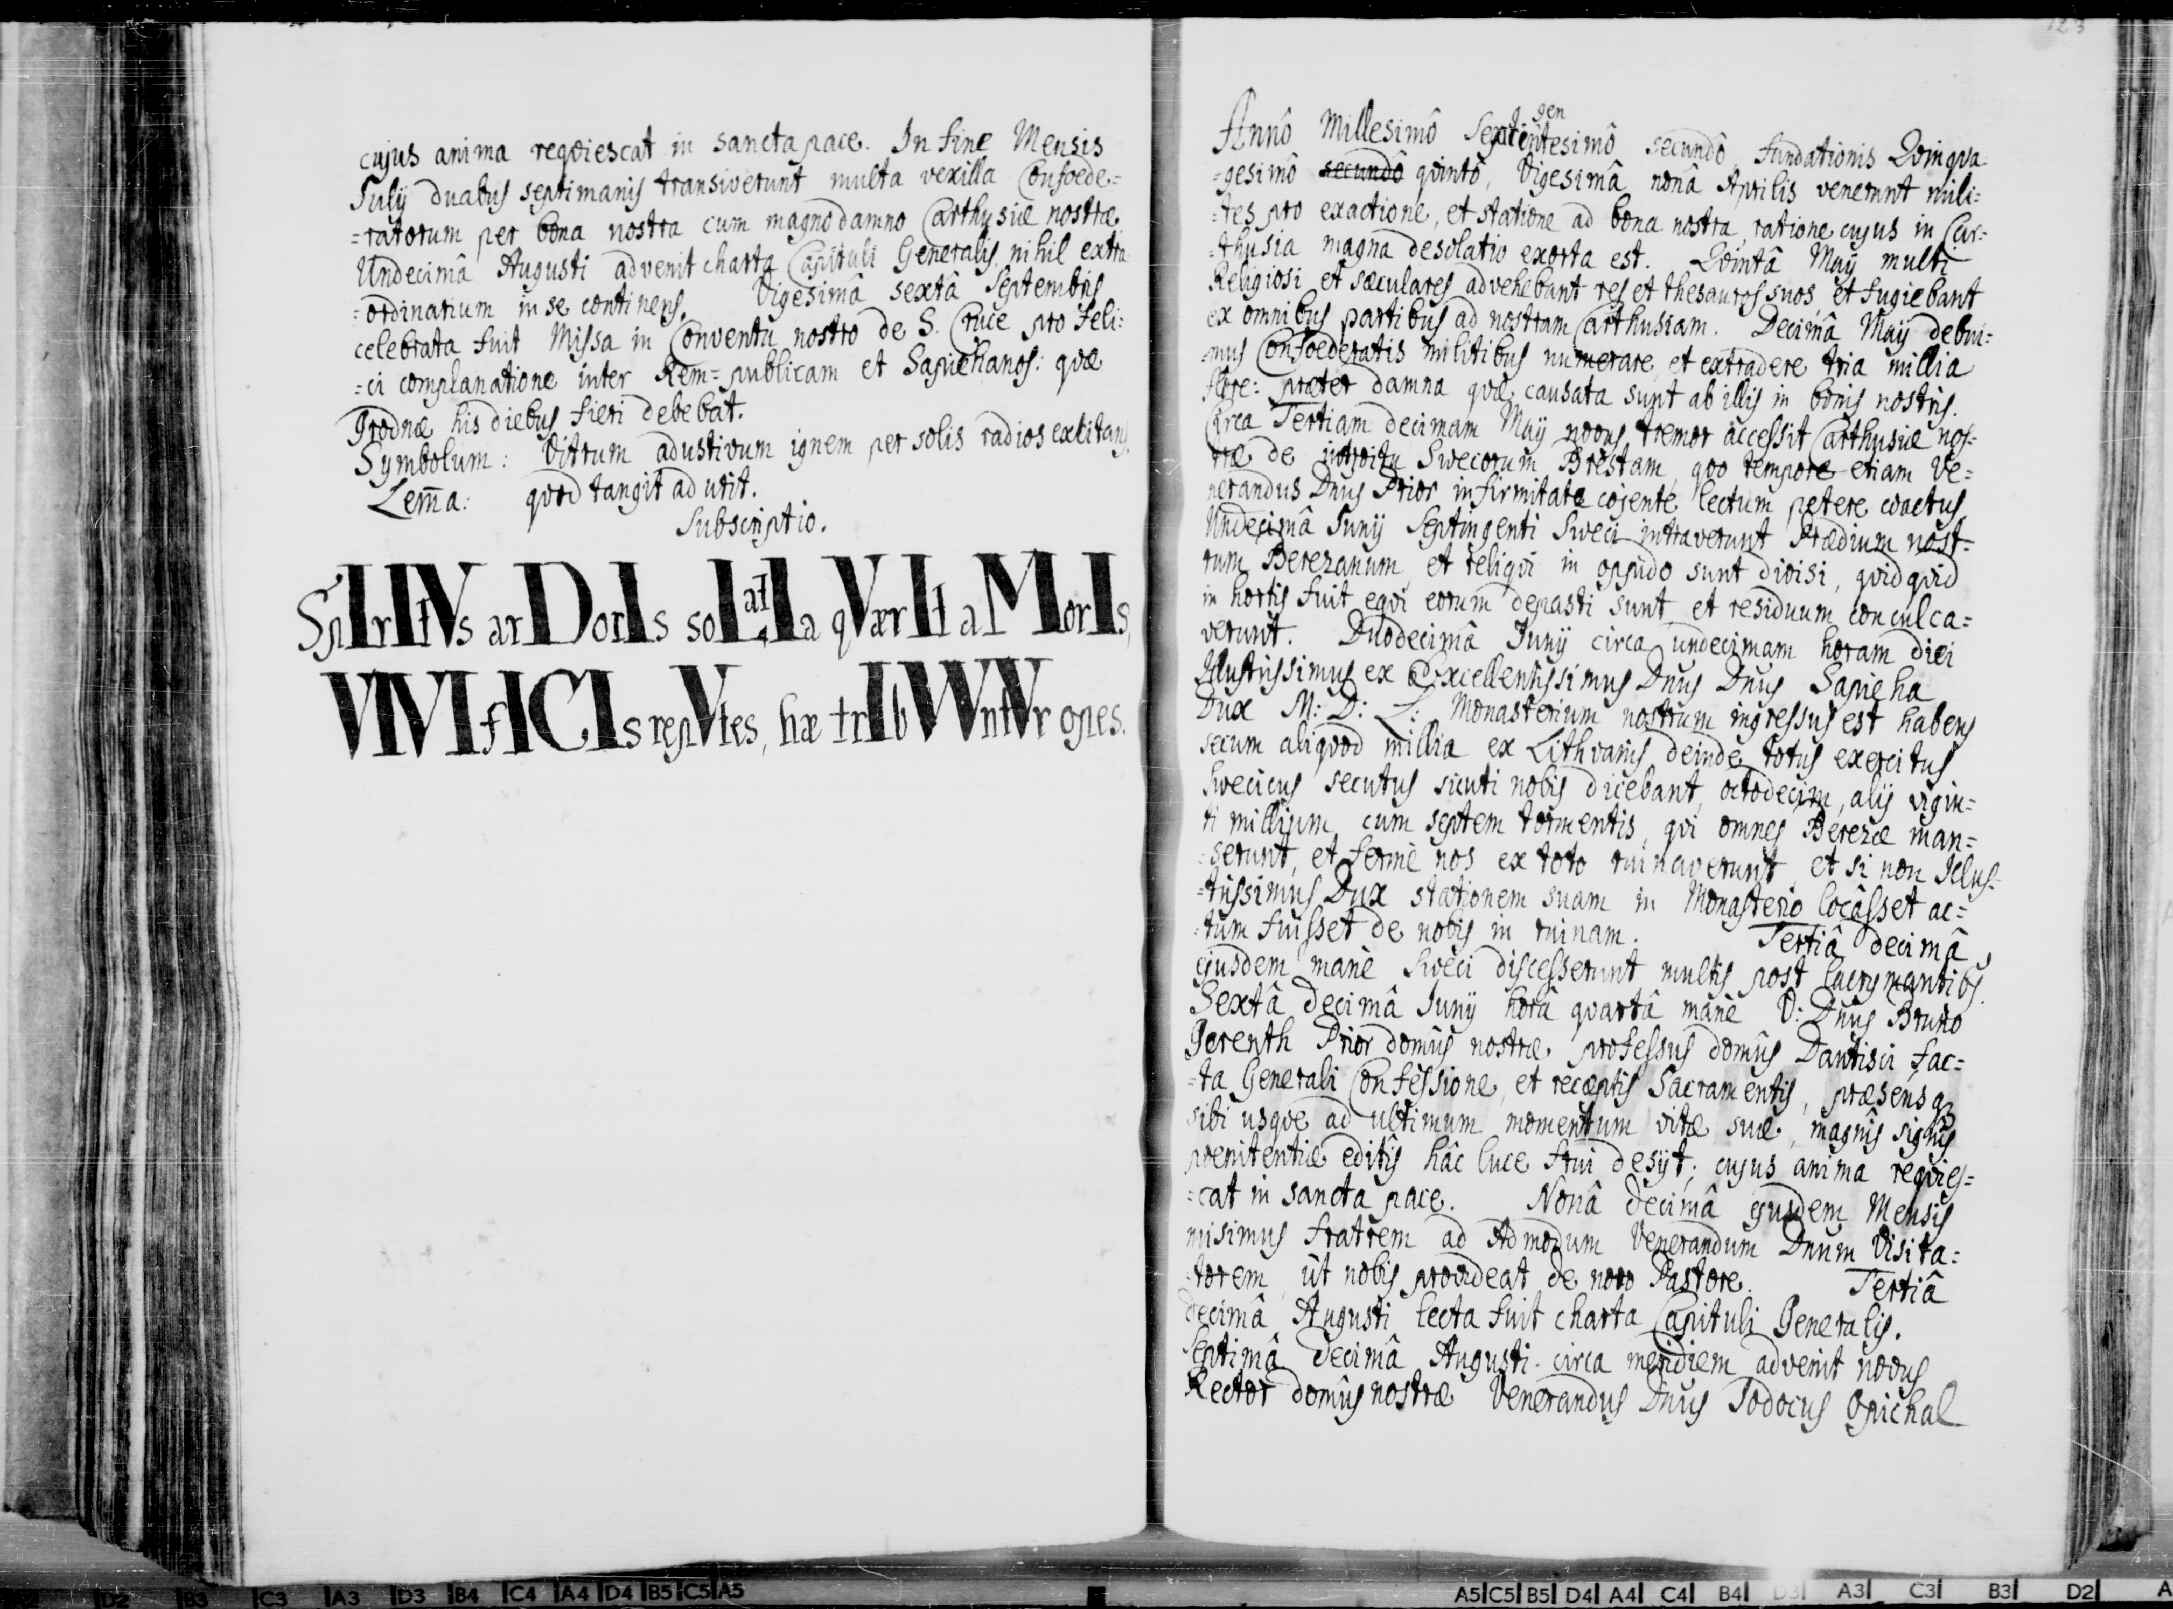 cujus anima reqviescat in sancta pace. In fine Mensis
July duabus septimanis transiverunt multa vexilla Confoede=
=ratorum per bona nostra cum magno damno Carthusiæ nostræ
Undecimâ Augusti advenit charta Capituli Generalis nihil extra
=ordinarium in se continens. Vigesimâ sextâ Septembris
celebrata fuit Missa in Conventu nostro de S. Cruce pro feli=
=ci complanatione inter Rem=publicam et Sapiehanos: qvæ
Grodnæ his diebus fieri debebat.
Symbolum: Vitrum adustivum ignem per solis radios exitans
Lem̄a: qvod tangit adurit.
Subscriptio.
SpIrItVs arDorIs soLatIa qVærIt aMorIs,
VIVIfICIs repVtes, hæ trIbVVntVr opes.
123
Annô Millesimô Septingentesimô secundô, fundationis Qvinqva
=gesimô secundô qvintô, Vigesimâ nonâ Aprilis venerunt mili=
=tes pro exactione, et statione ad bona nostra ratione cujus in Car=
=thusia magna desolatio exorta est. Qvintâ Maÿ multi
Religiosi et sæculares advehebant res et thesauros suos, et fugiebant
ex omnibus partibus ad nostram Carthusiam. Decimâ Maÿ debui=
=mus Confoederatis militibus numerare, et extradere tria millia
flore: præter damna qvæ causata sunt ab illis in bonis nostris.
Circa Tertiam decimam Maÿ novus tremor accessit Carthusiæ nos=
træ de introitu Swecorum Brestam, qvo tempore etiam Ve=
nerandus Dnus Prior infirmitate cojente lectum petere coactus
Undecimâ Junÿ Septingenti Sweci intraverunt Prædium nost=
rum Berezanum, et reliqvi in oppido sunt divisi, qvidqvid
in hortis fuit eqvi eorum depasti sunt et residuum conculca=
verunt. Duodecimâ Junÿ circa undecimam horam diei
Illustrissimus ex Excellentissimus Dnus Dnus Sapieha
Dux M: D: L: Monasterium nostrum ingressus est habens
secum aliqvod millia ex Lithvanis deinde totus exercitus
Swecicus secutus sicuti nobis dicebant, octodecim, alÿ vigin=
ti millium cum septem tormentis, qvi omnes Berezæ man=
=serunt, et fermè nos ex toto ruinaverunt, et si non Illus=
=trissimus Dux stationem suam in Monasterio locâsset ac=
=tum fuisset de nobis in ruinam. Tertiâ decimâ
ejusdem manè Sweci discesserunt multis post lacrymantibs.
Sextâ decimâ Junÿ horâ qvartâ manè V: Dnus Bruno
Gerenth Prior domûs nostræ, professus domûs Dantisci fac=
=ta Generali Confessione, et receptis Sacramentis, præsensq
sibi usqve ad ultimum momentum vitæ suæ, magnîs signîs
pœnitentiæ editîs hâc luce frui desÿt; cujus anima reqvies=
=cat in sancta pace. Nonâ decimâ ejusdem Mensis
misimus fratrem ad Admodum Venerandum Dnum Visita=
=torem, ut nobis provideat de novo Pastore. Tertiâ
decimâ Augusti lecta fuit charta Capituli Generalis.
Septimâ decimâ Augusti circa meridiem advenit novus
Rector domûs nostræ Venerandus Dnus Jodocus Opichal
D2 B3 C3 A3 D3 B4 C4 A4 D4 B5 C5 A5
A5 C5 B5 D4 A4 C4 B4 D3 A3 C3 B3 D2